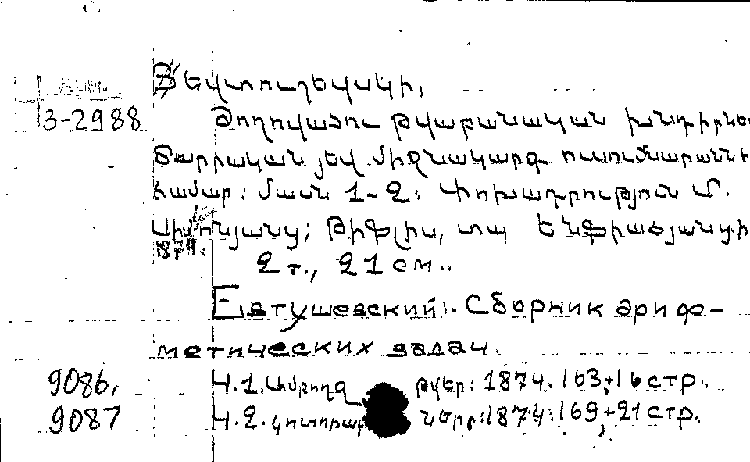 Յեվտուշեվսկի,
3-2988 Ժողովածու թվաբանական խնդիրնե
Տարրական յեվ միջնակարգ ուսումնարաննի
համար: Մասն 1-2: Փոխադրություն Մ.
Սիմոնյանց: Թիֆլիս, տպ Ենֆիաճյանցի
1874.
2 т., 21 см..
Евтушевский. Сборник арифе-
метических задач.
9086. Ч.1. Ամբողջ թվեր: 1874. 163,+16 стр.
9087 Ч.2. կոտորա ներ: 1874: 169,+21 стр.